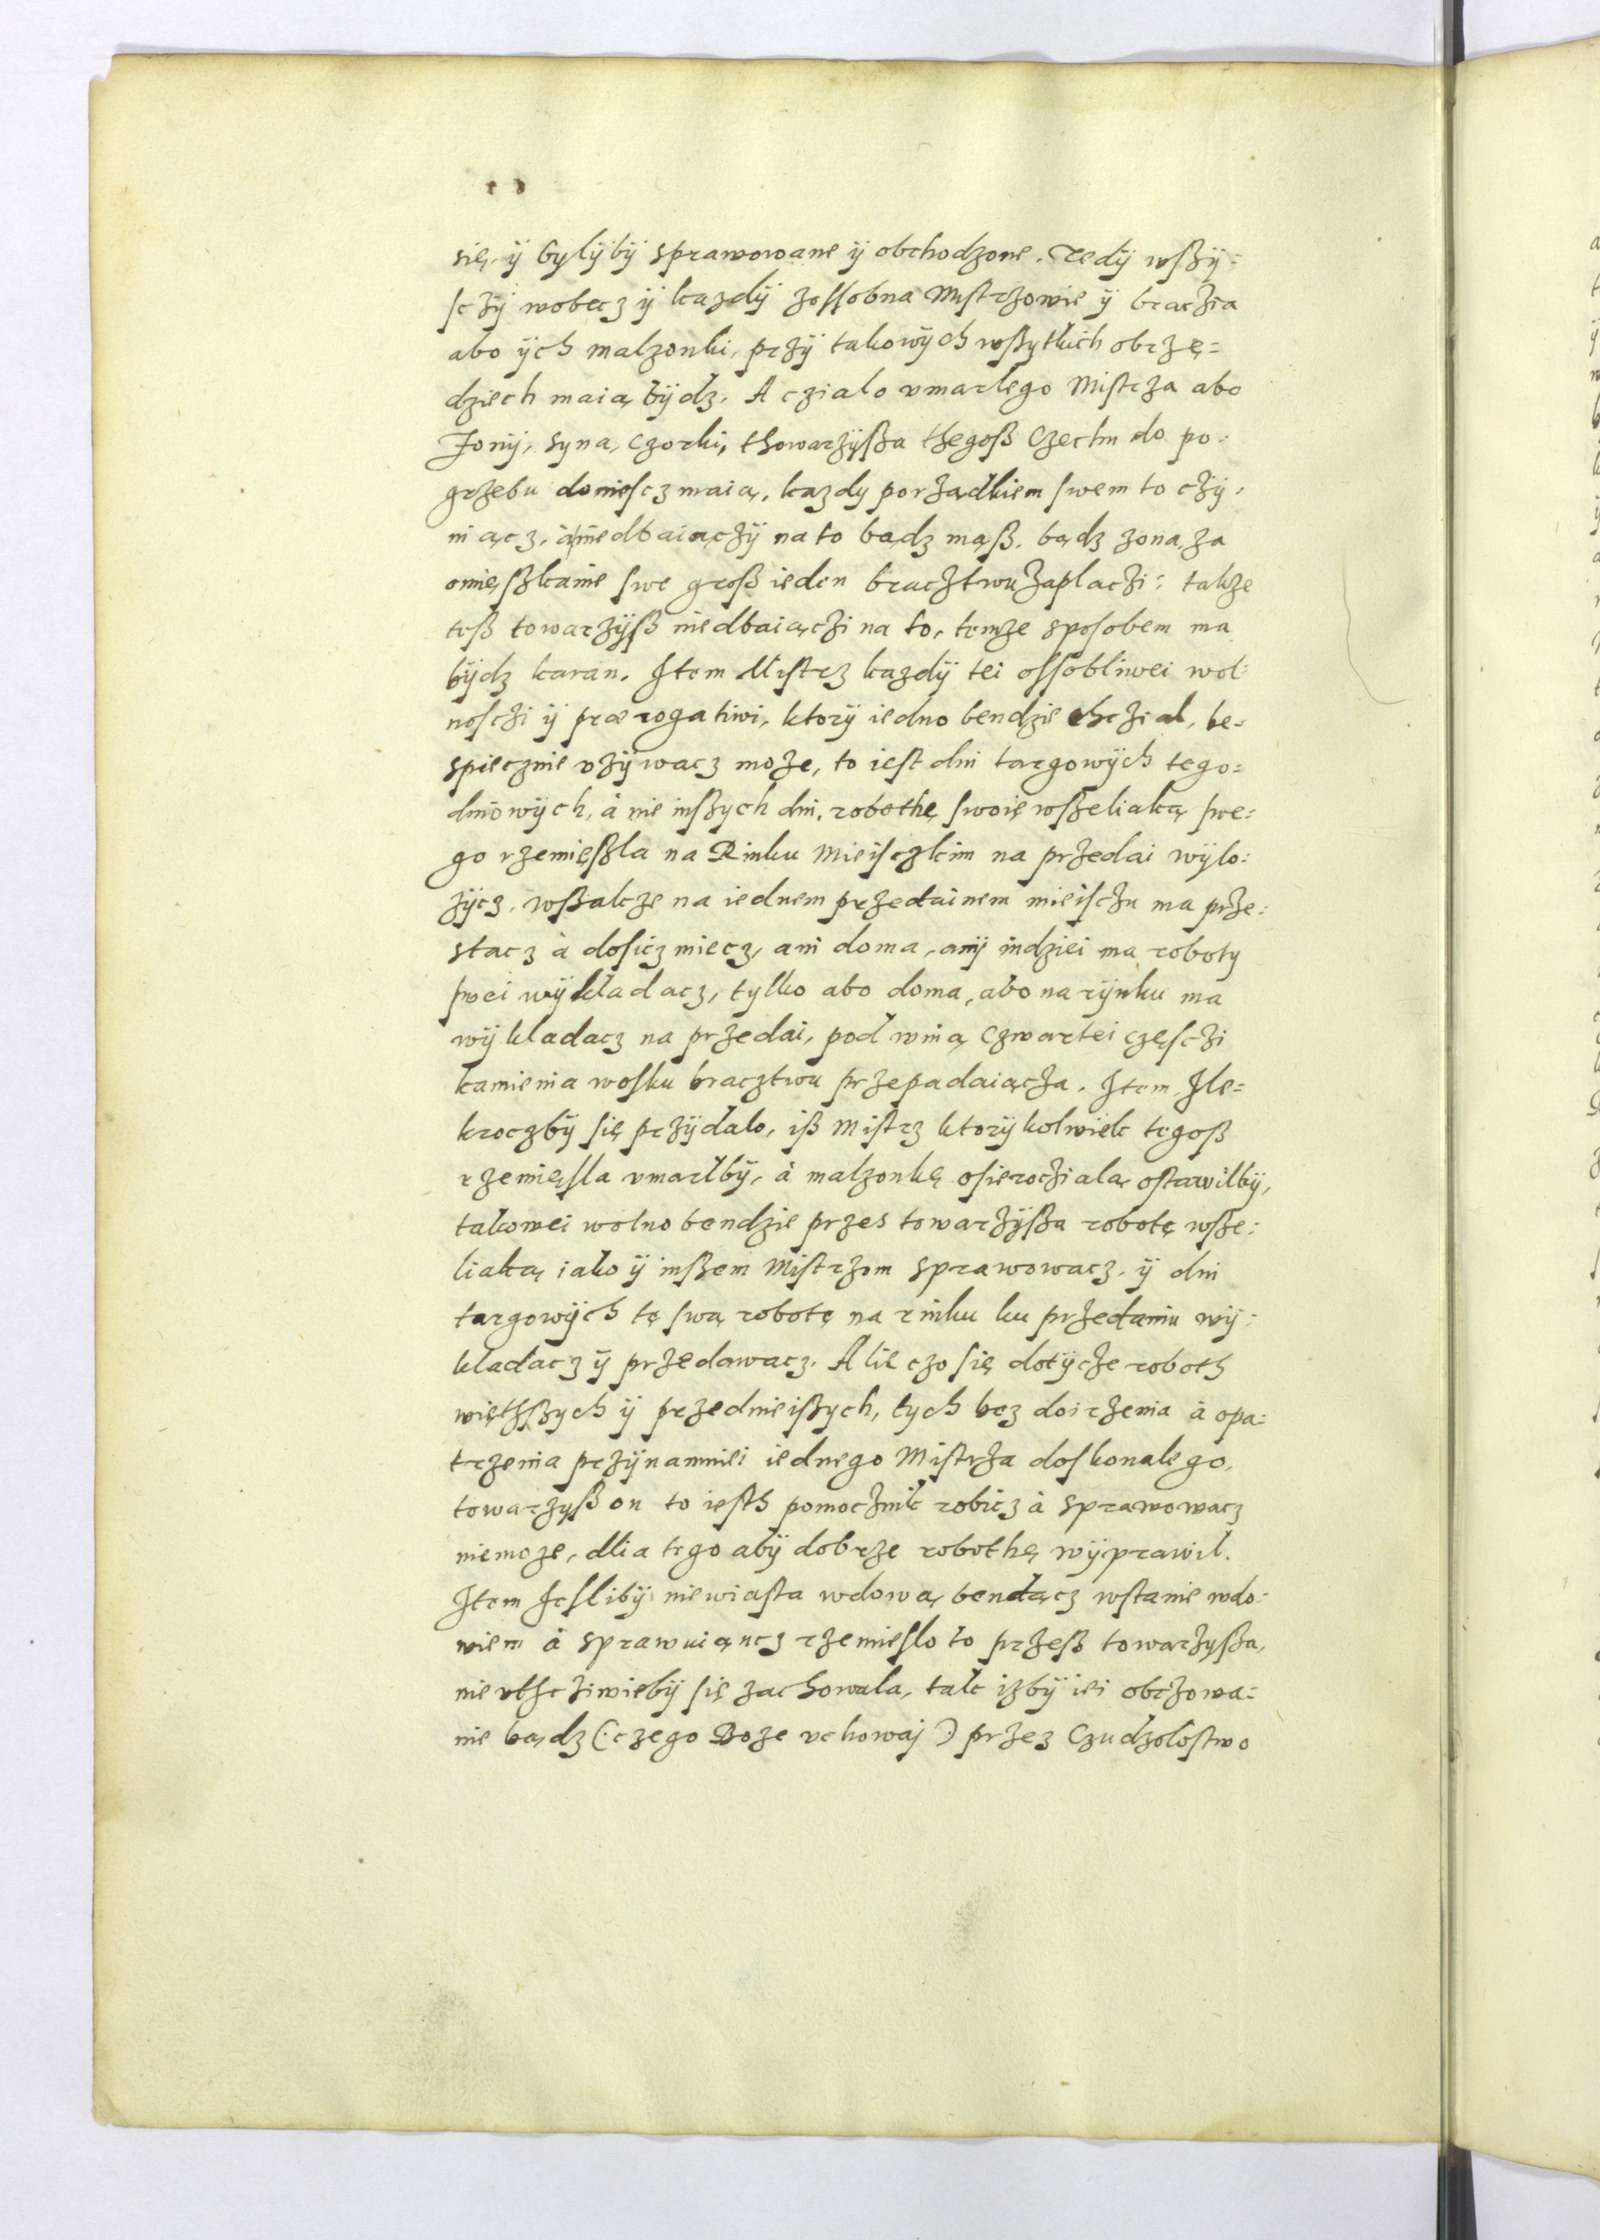 się, ÿ bylÿbÿ sprawowane ÿ obchodzone. Tedÿ wßÿ=
scżÿ wobecz ÿ kazdÿ zossobna Mistrzowie ÿ braczia
abo ÿch malzonki, przÿ takowÿch wßytkich obrzę=
dziech maią bÿdz. A czialo vmarlego Mistrza abo
Zonÿ, syna, Czorki, thowarzÿßa thegoß Czechu do po=
grzebu doniescz maią, kazdy porządkiem swem to czÿ=
niącz, à niedbaiączÿ na to bądz mąß, bądz zona, za
omięßkanie swe groß ieden bracztwu zaplaczi: takze
teß towarzÿß niedbaiączi na to, temze sposobem ma
bÿdz karan. Item Mistrz kazdÿ tei ossobliwei wol=
nosczi ÿ prærogatiwi, ktorÿ iedno bendzie chczial, be=
spiecznie vzÿwacz moze, to iest dni targowÿch tego=
dniowÿch, à nie inßych dni, robothę swoię wßeliaką swe=
go rzemięßla na Rinku Mieisczkim na przedai wÿlo=
zÿcz, wßakze na iednem przedainem mieisczu ma prze=
stacz à dosicz miecz, ani doma, anÿ indziei ma roboty
swei wÿkladacz, tylko abo doma, abo na rÿnku ma
wÿkladacz na przedai, pod winą Czwartei Częsczi
kamienia wosku bracztwu przepadaiącza. Item Ile=
kroczbÿ się przÿdalo, iß Mistrz ktorÿkolwiek tegoß
rzemięsla vmarlbÿ, à malzonkę osierocziałą ostawilbÿ,
takowei wolno bendzie przes towarzÿßa robotę wße=
liaką iako ÿ inßem Mistrzom sprawowacz, ÿ dni
targowÿch tę swą robotę na rinku ku przedaniu wÿ=
kladacz ÿ przedawacz. A lie czo się dotÿcze roboth
więthßych ÿ przednieißych, tych bez doirzenia à opa=
trzenia przÿnamniei iednego Mistrza doskonalego,
towarzyß on to iesth pomocznik robicz à sprawowacz
niemoze, dlia tego abÿ dobrze robothę wÿprawil.
Item Iesliby niewiasta wdową bendącz wstanie wdo=
wiem à sprawuiąncz rzemieslo to przeß towarzyßa,
nievthcziwiebÿ się zachowala, tak izbÿ iei obczowa=
nie bądz (:czego Boze vchowaj:) przez Czudzolostwo